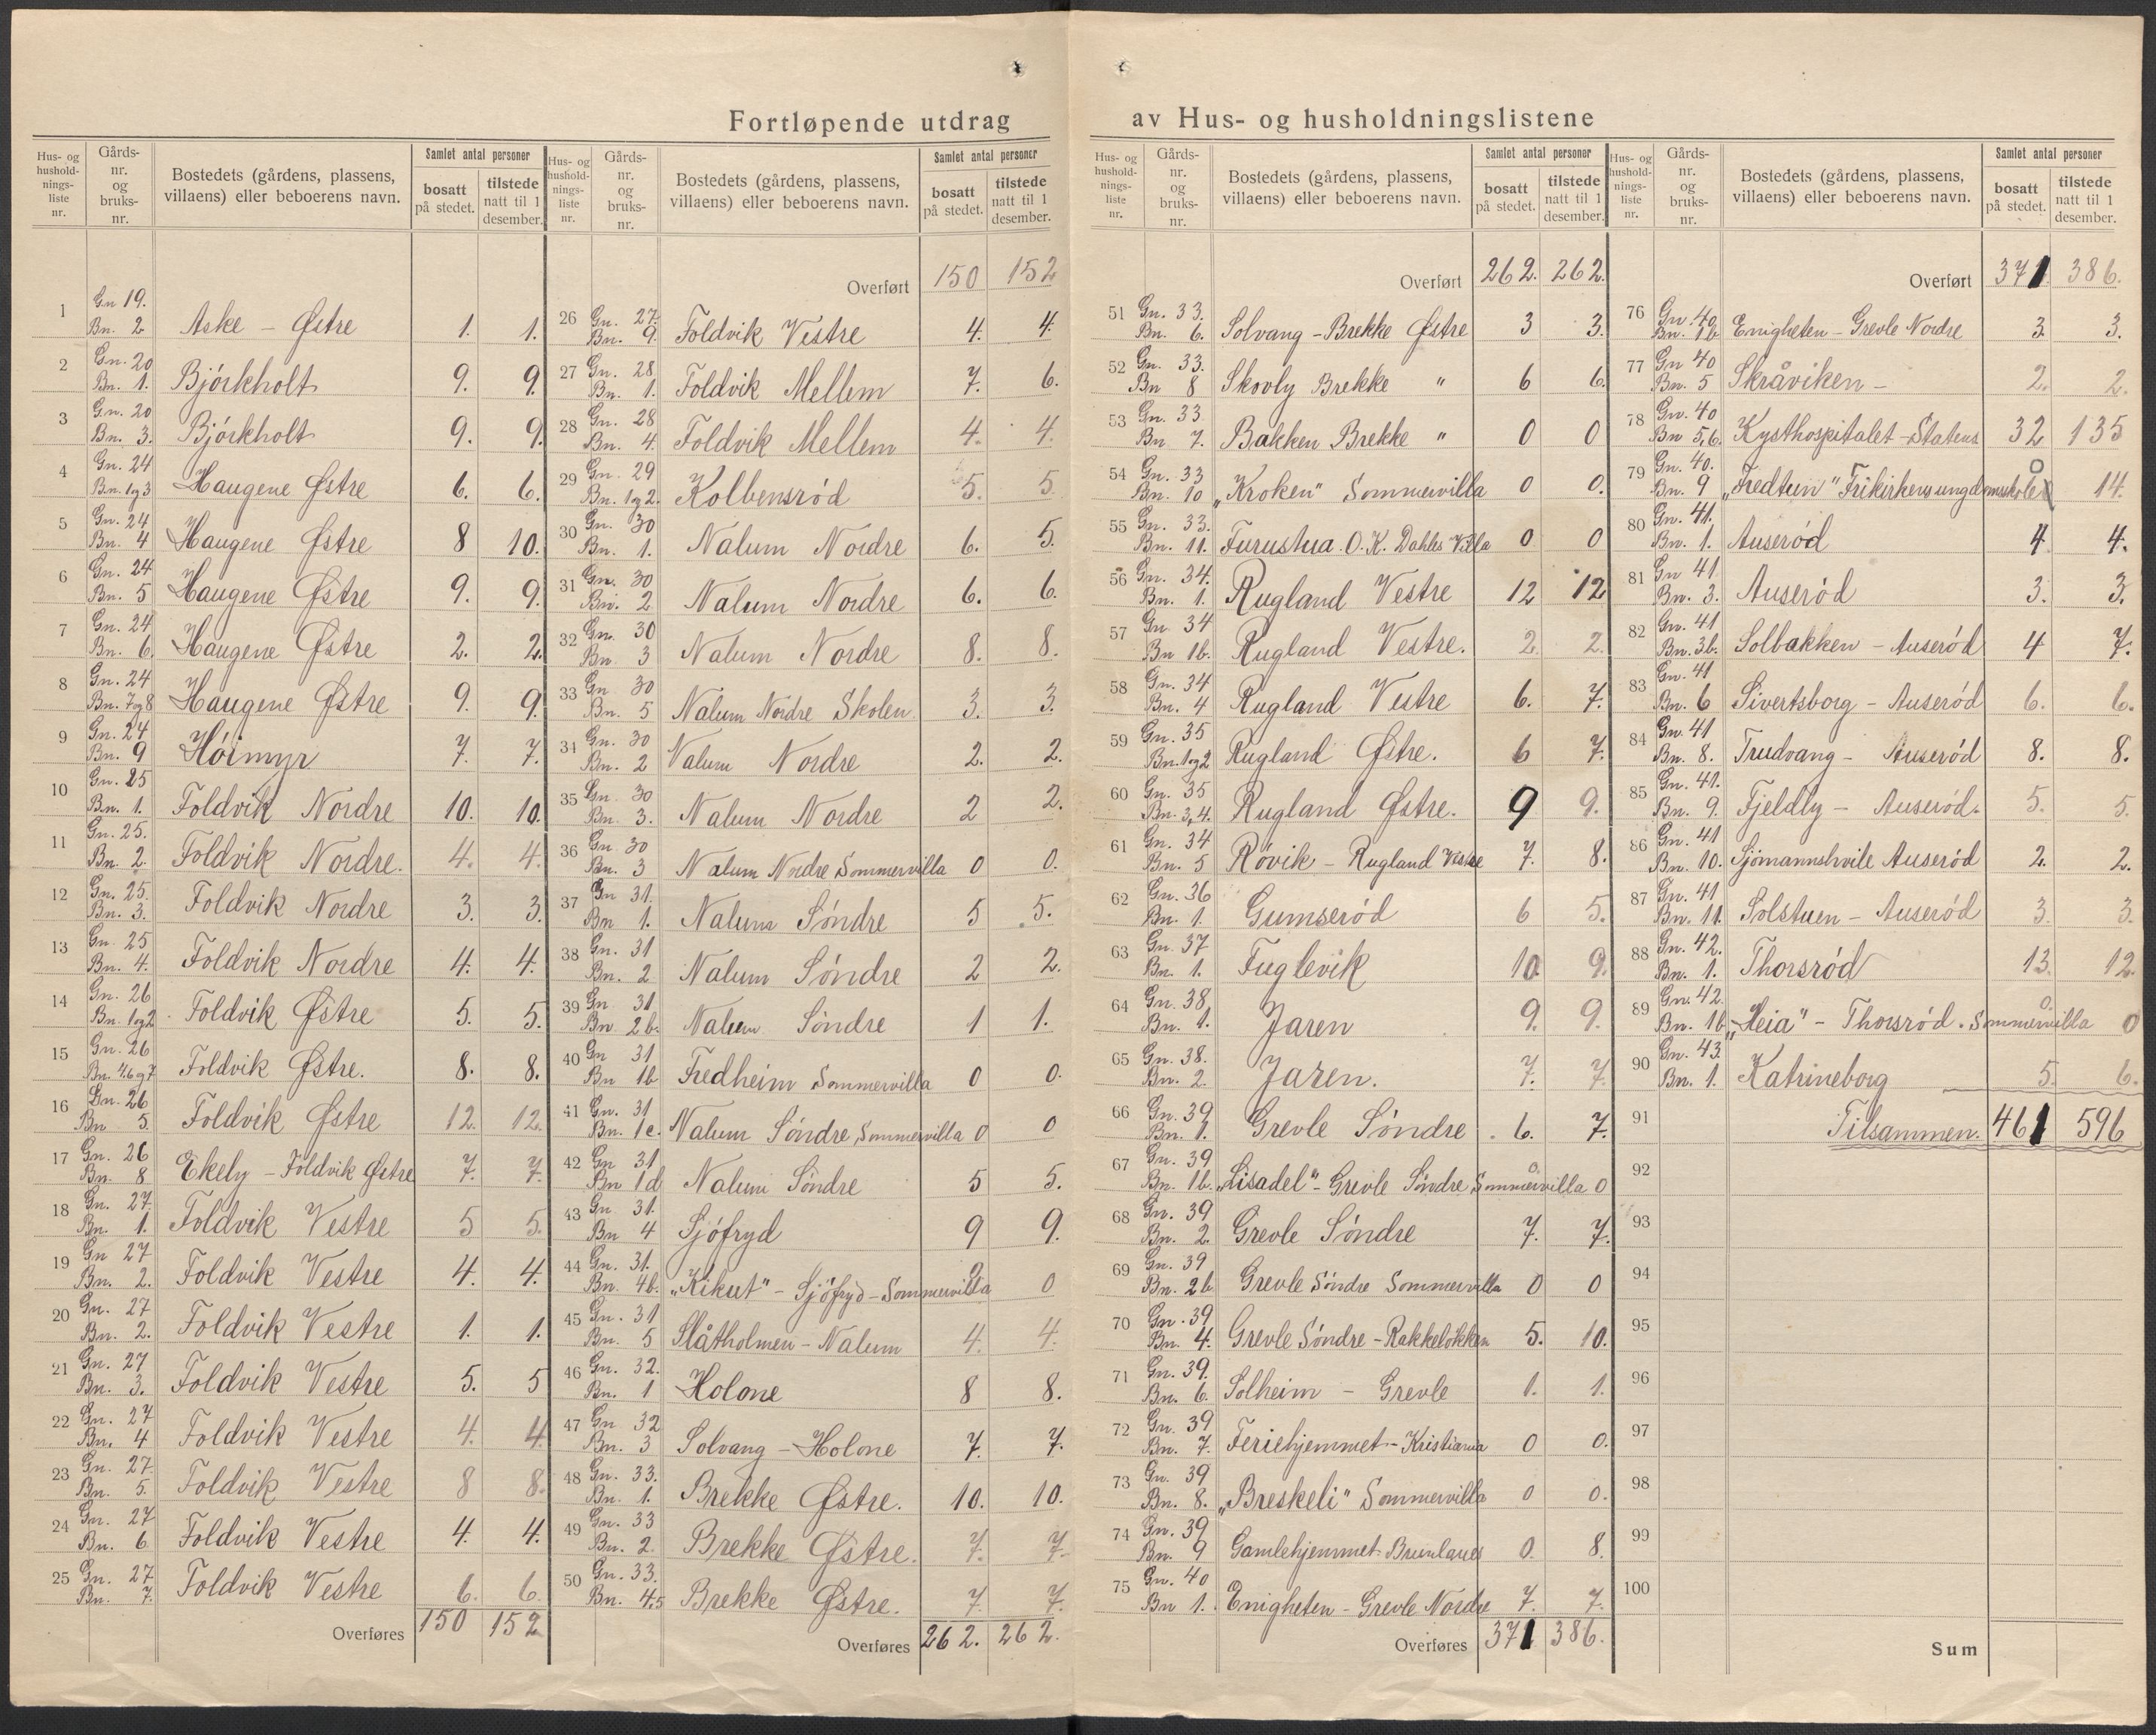 Fortløpende utdrag av Hus- og husholdningslistene
Hus- og husholdnings-liste nr. | Gårds-nr. og bruks-nr. | Bostedets (gårdens, plassens, villaens) eller beboerens navn. | Samlet antal personer: bosatt på stedet. | tilstede natt til 1 desember.
1 Gn 19. Bn. 2 Aske - Østre 1. 1.
2 Gn. 20 Bn. 1. Bjórkholt 9. 9.
3 Gn. 20 Bn. 3. Bjórkholt 9. 9.
4 Gn. 24 Bn. 1og3 Haugene Østre 6. 6.
5 Gn. 24 Bn. 4 Haugene Østre 8 10.
6 Gn. 24 Bn. 5 Haugene Østre 9. 9.
7 Gn. 24 Bn. 6 Haugene Østre 2. 2.
8 Gn. 24 Bn. 7og8 Haugene Østre 9. 9.
9 Gn. 24 Bn. 9 Hóimyr 7. 7.
10 Gn. 25 Bn. 1. Foldvik Nordre 10. 10.
11 Gn. 25. Bn. 2. Foldvik Nordre. 4. 4.
12 Gn. 25. Bn. 3. Foldvik Nordre 3. 3.
13 Gn. 25 Bn. 4. Foldvik Nordre 4. 4.
14 Gn. 26 Bn. 1og2 Foldvik Østre 5. 5.
15 Gn. 26 Bn. 4.6og7 Foldvik Østre. 8. 8.
16 Gn. 26 Bn 5. Foldvik Østre 12. 12.
17 Gn. 26 Bn. 8 Ekely - Foldvik Østre 7. 7.
18 Gn. 27. Bn. 1. Foldvik Vestre 5 5.
19 Gn 27 Bn. 2. Foldvik Vestre 4. 4.
20 Gn. 27 Bn. 2. Foldvik Vestre 1. 1.
21 Gn. 27 Bn. 3. Foldvik Vestre 5. 5
22 Gn. 27 Bn. 4 Foldvik Vestre 4. 4.
23 Gn. 27. Bn. 5. Foldvik Vestre 8 8.
24 Gn. 27 Bn. 6 Foldvik Vestre 4. 4.
25 Gn. 27. Bn. 7. Foldvik Vestre 6. 6.
Overføres 150 152
Hus- og husholdnings-liste nr. | Gårds-nr. og bruks-nr. | Bostedets (gårdens, plassens, villaens) eller beboerens navn. | Samlet antal personer: bosatt på stedet. | tilstede natt til 1 desember.
Overført 150 152
26 Gn. 27. Bn. 9. Foldvik Vestre 4. 4.
27 Gn. 28 Bn. 1. Foldvik Mellem 7. 6.
28 Gn. 28 Bn. 4. Foldvik Mellem 4. 4.
29 Gn. 29 Bn. 1og2. Kolbensród 5. 5
30 Gn. 30 Bn. 1. Nalum Nordre 6. 5.
31 Gn. 30 Bn. 2 Nalum Nordre 6. 6.
32 Gn. 30 Bn. 3 Nalum Nordre 8. 8.
33 Gn 30 Bn. 5 Nalum Nordre Skolen 3. 3.
34 Gn. 30 Bn. 2 Nalum Nordre 2. 2.
35 Gn. 30 Bn. 3. Nalum Nordre 2 2.
36 Gn. 30 Bn. 3 Nalum Nordre Sommervilla 0 0.
37 Gn 31. Bn 1. Nalum Sóndre 5 5.
38 Gn. 31 Bn. 2 Nalum Sóndre 2 2.
39 Gn 31 Bn 2b. Nalum Sóndre 1 1.
40 Gn 31 Bn 1b Fredheim Sommervilla 0 0.
41 Gn. 31 Bn. 1c. Nalum Sóndre, Sommervilla 0 0
42 Gn 31 Bn 1d Nalum Sóndre 5 5.
43 Gn 31. Bn 4 Sjófryd 9 9.
44 Gn. 31. Bn. 4b. „Kikut" - Sjófryd - Sommervilla 0 0
45 Gn. 31 Bn. 5 Slåtholmen - Nalum 4. 4.
46 Gn. 32. Bn. 1 Holone 8 8.
47 Gn 32 Bn. 3 Solvang - Holone 7. 7.
48 Gn. 33. Bn. 1. Brekke Østre. 10. 10.
49 Gn. 33 Bn. 2. Brekke Østre. 7. 7.
50 Gn. 33. Bn. 4.5 Brekke Østre. 7. 7.
Overføres 262. 262.
Hus- og husholdnings-liste nr. | Gårds-nr. og bruks-nr. | Bostedets (gårdens, plassens, villaens) eller beboerens navn. | Samlet antal personer: bosatt på stedet. | tilstede natt til 1 desember.
Overført 262. 262.
51 Gn. 33. Bn. 6. Solvang - Brekke Østre 3 3.
52 Gn. 33. Bn 8 Skovly Brekke " 6 6.
53 Gn. 33. Bn 7. Bakken Brekke " 0 0
54 Gn. 33 Bn. 10 „Kroken" Sommervilla 0 0.
55 Gn. 33. Bn. 11. Furustua. O. K. Dahles Villa 0 0
56 Gn. 34. Bn. 1. Rugland Vestre 12 12
57 Gn 34 Bn 1b. Rugland Vestre. 2. 2.
58 Gn. 34 Bn. 4 Rugland Vestre 6. 7.
59 Gn. 35 Bn. 1og2 Rugland Østre. 6 7.
60 Gn. 35 Bn. 3,4. Rugland Østre. 9 9.
61 Gn. 34 Bn. 5 Róvik - Rugland Vestre 7. 8.
62 Gn. 36 Bn. 1. Gumseród 6 5.
63 Gn. 37 Bn. 1. Fuglevik 10. 9.
64 Gn. 38, Bn. 1. Jaren 9. 9.
65 Gn. 38. Bn. 2. Jaren. 7. 7.
66 Gn. 39 Bn. 1. Grevle Sóndre 6. 7.
67 Gn. 39 Bn. 1b. „Lisadel" - Grevle Sóndre Sommervilla 0. 0
68 Gn. 39 Bn. 2. Grevle Sóndre 7. 7.
69 Gn. 39 Bn. 2b Grevle Sóndre Sommervilla 0 0
70 Gn. 39 Bn. 4. Grevle Sóndre - Rakkelókken 5. 10.
71 Gn. 39. Bn. 6. Solheim - Grevle 1. 1.
72 Gn. 39 Bn. 7. Feriehjemmet - Kristiania 0 0.
73 Gn. 39 Bn. 8. „Breskeli" Sommervilla 0 0.
74 Gn. 39 Bn. 9 Gamlehjemmet - Brunlanes 0. 8.
75 Gn. 40 Bn 1. Enigheten - Grevle Nordre 7. 7.
Overføres 371 386.
Hus- og husholdnings-liste nr. | Gårds-nr. og bruks-nr. | Bostedets (gårdens, plassens, villaens) eller beboerens navn. | Samlet antal personer: bosatt på stedet. | tilstede natt til 1 desember.
Overført 371. 386.
76 Gn. 40 Bn. 1b Enigheten - Grevle Nordre 3 3.
77 Gn 40 Bn. 5 Skråviken - 2. 2.
78 Gn. 40 Bn 5,6. Kysthospitalet - Statens 32 135
79 Gn. 40. Bn. 9 „Fredtun" Frikirkens ungdomsskole 0 14.
80 Gn. 41. Bn. 1. Auseród 4 4.
81 Gn 41 Bn. 3. Auseród 3. 3.
82 Gn. 41 Bn. 3b. Solbakken - Auseród 4 7.
83 Gn. 41 Bn. 6 Sivertsborg - Auseród 6. 6.
84 Gn. 41 Bn. 8. Trudvang - Auseród 8. 8.
85 Gn. 41. Bn. 9. Fjeldly - Auseród. 5. 5
86 Gn. 41 Bn. 10. Sjómannshvile Auseród 2. 2.
87 Gn. 41 Bn. 11. Solstuen - Auseród 3. 3.
88 Gn. 42. Bn. 1. Thorsród 13. 12.
89 Gn. 42. Bn. 1b „Heia" - Thorsród. Sommervilla 0. 0
90 Gn. 43. Bn. 1. Katrineborg 5. 6.
91 Tilsammen. 461 596
92
93
94
95
96
97
98
99
100
Sum